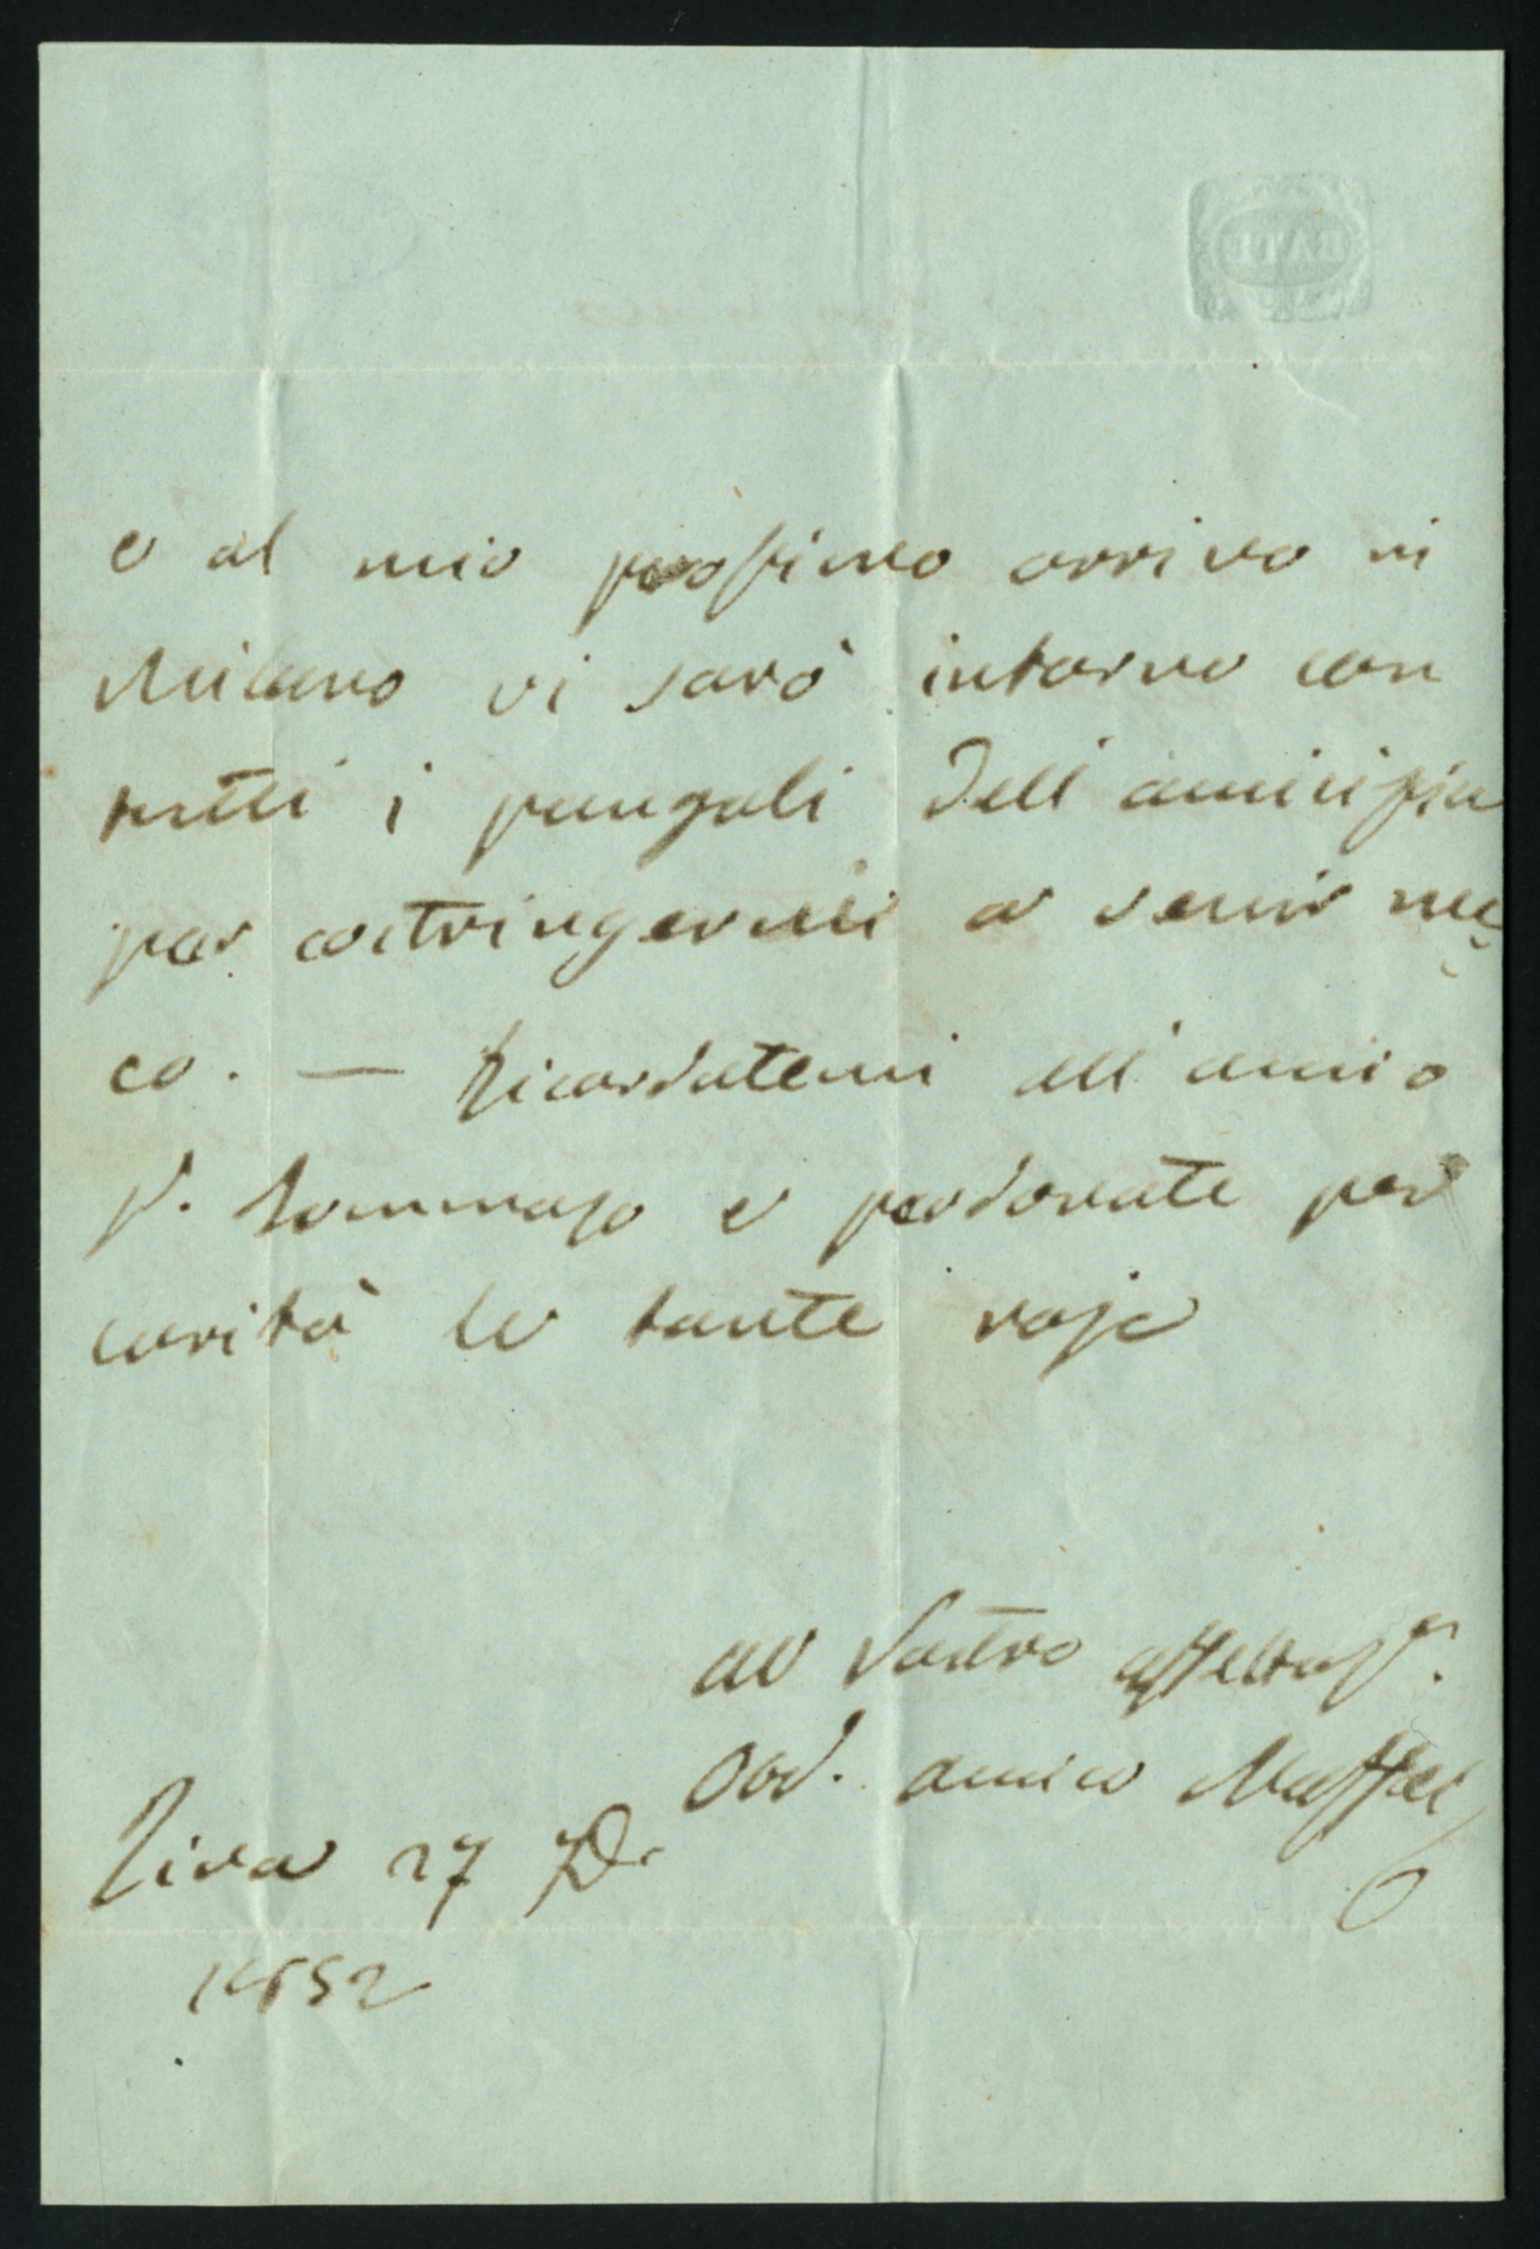 e al mio prossimo arrivo in
Milano vi sarò intorno con
tutti i pungoli dell'amicizia
per costringervi a venir me
co. — Ricordatemi all'amico
P. Tommaso e perdonate per
carità le tante
al Vostro affettass.
Obb. amico Maffei
Riva 27 D.
1852
BATH